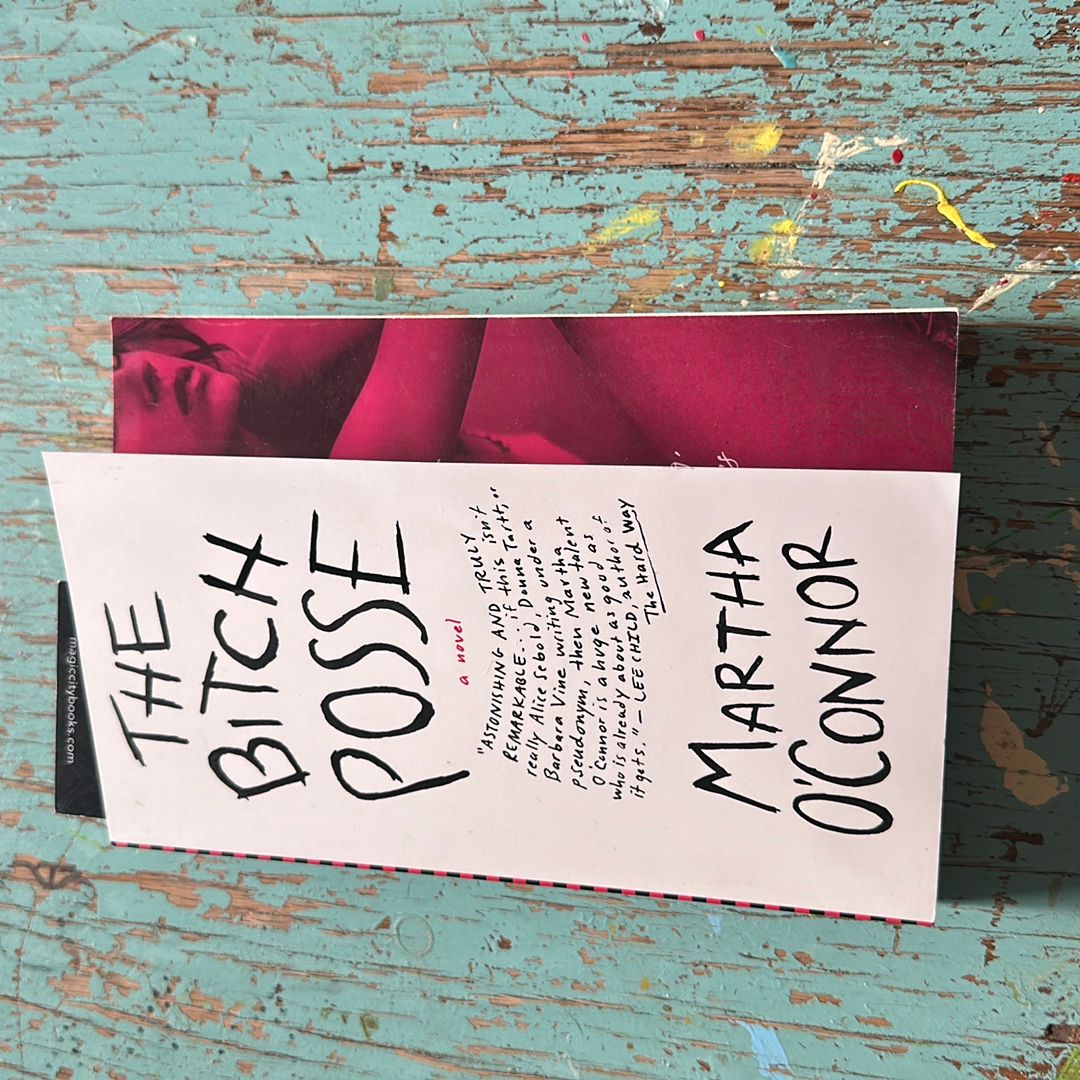 THE
BITCH
POSSE
a novel
"ASTONISHING AND TRULY
REMARKABLE... if this isn't
really Alice Sebold, Donna Tartt, or
Barbara Vine writing under a
pseudonym, then Martha
O'Connor is a huge new talent
who is already about as good as
it gets." — LEE CHILD, author of
The Hard Way
MARTHA
O'CONNOR
magiccitybooks.com